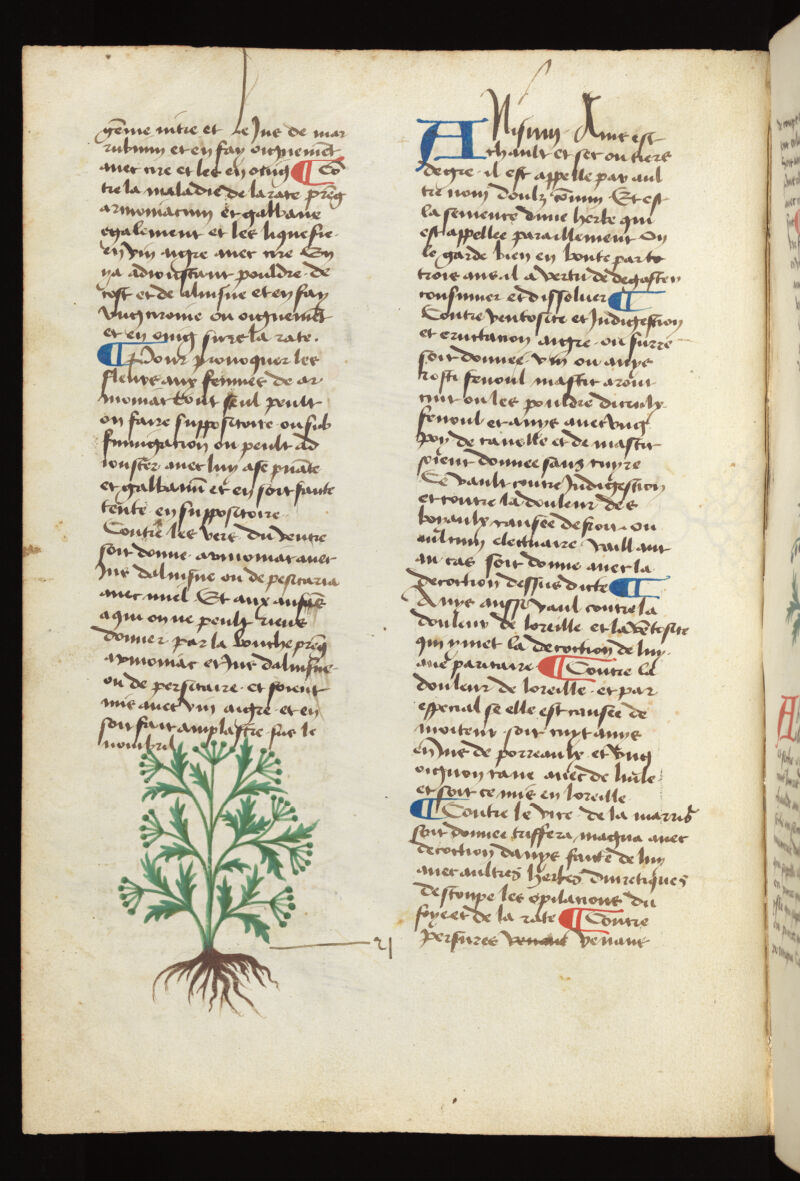 gẽme nitre et le Jus de mar
rubium et en fay oignemẽt
auec cire et lee en oing ¶ Cõ
tre la maladie de la rate prẽg
armoniacum et galbane
egalement et les liquefie
en vin aigre auec cire En
ya adioustant pouldre de
cost et de aluisne et en fay
vng cirome ou oignemẽt
et en oing surre la rate.
¶ Pour prouoquer les
fleurs aux femmes de ar
moniac tout seul peult
on faire suppositoire ou sub
fumigacion ou peult ad
iouster auec luy ase puãte
et galbanũ et en soit faicte
tente en suppositoire
Contre les vers du ventre
soit donne armoniac auec
Jus daluisne ou de persicaria
auec miel Et aux anfãs
a qui on ne peult riens
donner par la bouche prẽg
armoniac et Jus daluisne
ou de persicaire et soient
mis auec vin aigre et en
soit fait amplastre sus le
nombril
ANisum Anis est
chault et sec ou tiers
degre il est appelle par aul
tre nom doulz cõmin Et est
la semence dune herbe qui
est appellee paraillement On
le garde bien en bonte par to
trois ans il a vertu de degaster
consumer et dissoluer ¶
Contre ventosite et Indigestion
et eructacion aigre ou surre
soit donnee vin ou anys
rosti fenoul mastic aront
cuit ou les pouldre diceulx
fenoul et anys auec vng
poy de canelle et de mastic
soient donnee sans cuyre
Ce vault contre Indigestion
et contre la douleur des
boyaulx causee de froit ou
aultrum electuaire vaillant
au cas soit donne auec la
decoction dessus dicte ¶
Anys aussi vaul contre la
douleur de loreille et la vẽtosite
qui y met la decoction de luy
auec paritaire ¶ Contre la
douleur de loreille et par
especial se elle est causee de
moiteur soit cuyt anys
en Jus de porreaulx et vng
oignon caue auec de huile
et soit ce mis en loreille
¶ Contre le vice de la marris
soit donnee triffera magna auec
decoction danys faicte de luy
auec aultres herbes diuretiques
destoupe les opilacions du
foye et de la rate ¶ Contre
persures venans venans